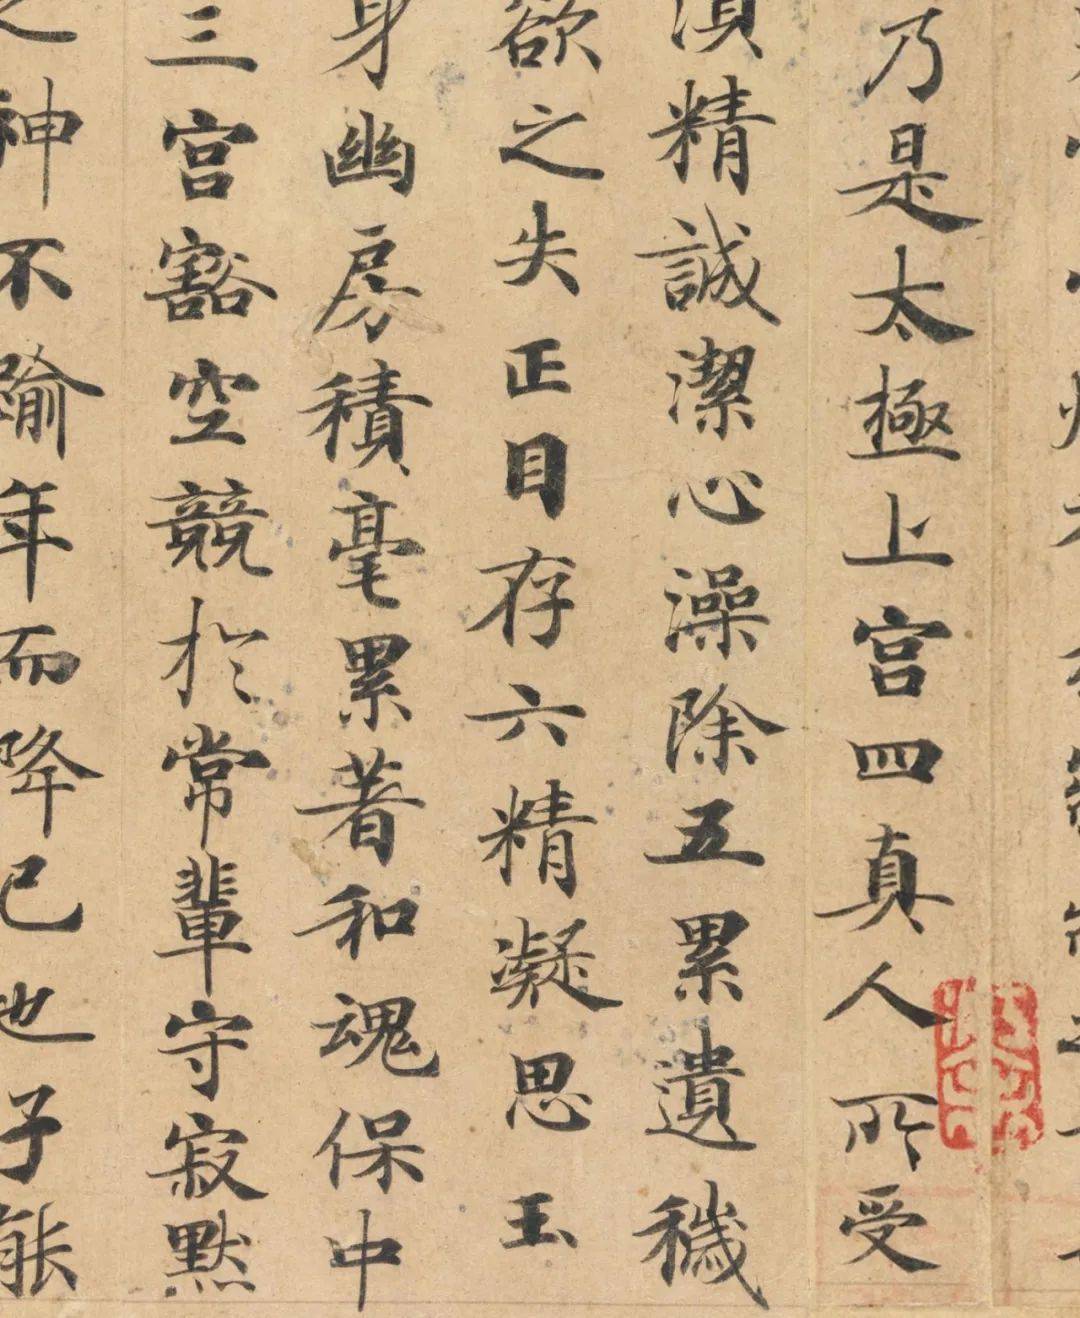 乃是太極上宫四真人所受
湏精誠潔心澡除五累遺穢
欲之失正目存六精凝思玉
身幽房積毫累著和魂保中
三宫豁空競於常輩守寂默
之神不踰年而降已也子能